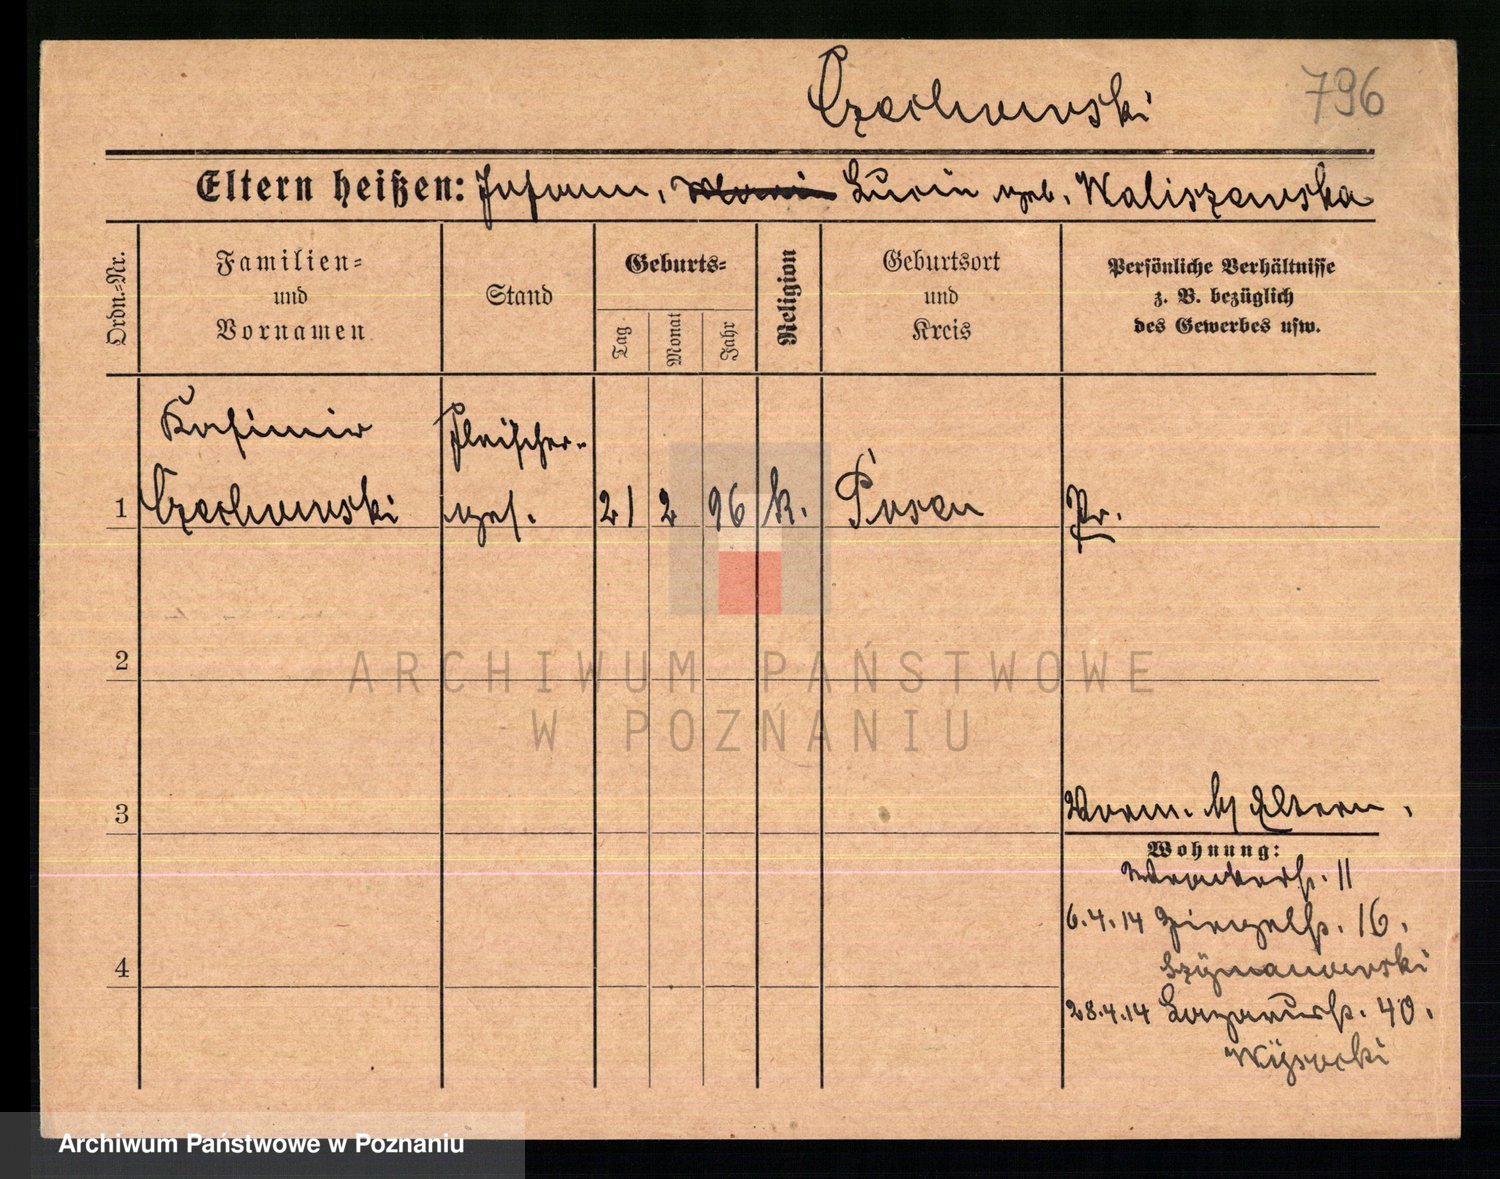 Czechowski 796
Eltern heißen: Johann, Lucia geb. Waliszewska
Ordn.-Nr.
Familien-
und
Vornamen
Stand
Geburts-
Tag
Monat
Jahr
Religion
Geburtsort
und
Kreis
Persönliche Verhältnisse
z. B. bezüglich
des Gewerbes usw.
Kasimir
Fleischer-
1 Czechowski ges. 21 2 96 k. Posen Pr.
2
ARCHIWUM PAŃSTWOWE
W POZNANIU
3
Eltern.
Wohnung:
11
6.4.14 Ziegelstr. 16.
Szymanowski
4
28.4.14 Lazarusstr. 40.
Wysocki
Archiwum Państwowe w Poznaniu